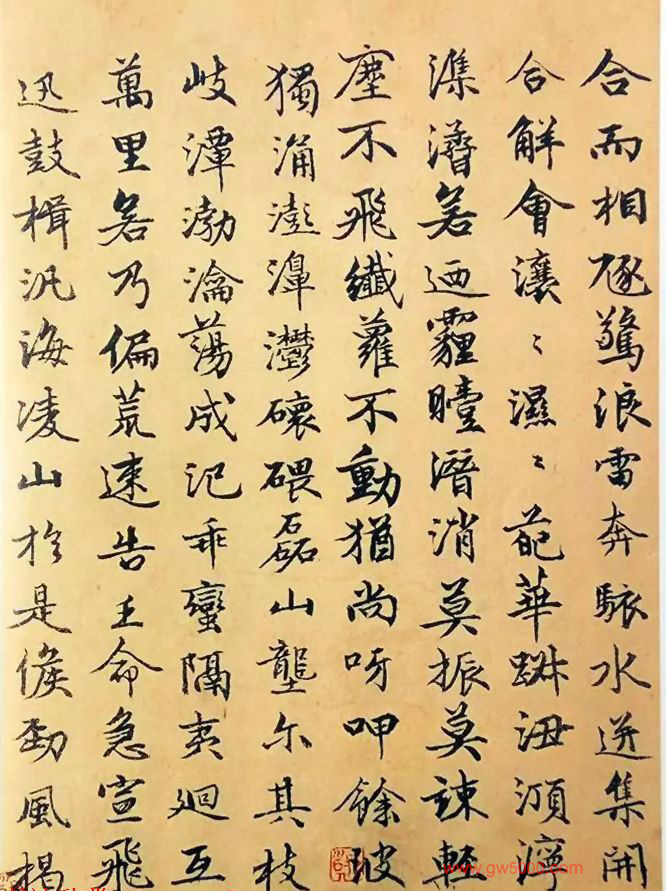 合而相豗驚浪雷奔駭水迸集開
合解會瀼〻濕〻葩華踧沑澒濘
潗㵫若迺霾曀潛消莫振莫竦輕
塵不飛纖蘿不動猶尚呀呷餘波
獨涌澎濞灪碨磊山壟尓其枝
岐潭渤瀹蕩成汜乖蠻隔夷迴互
萬里若乃偏荒速告王命急宣飛
迅鼓楫汎海凌山於是候勁風揭